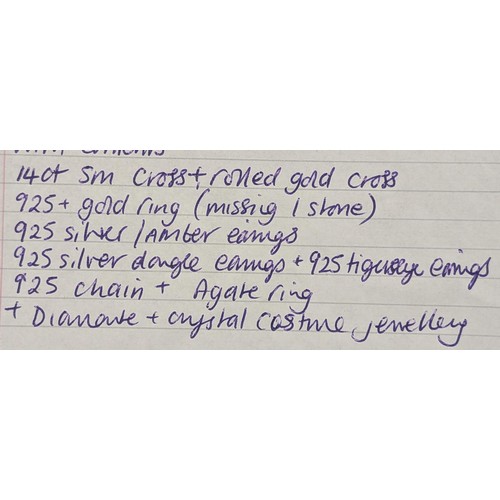 14ct sm cross + rolled gold cross
925 + gold ring (missig 1 stone)
925 silver / Amber earings
925 silver dangle earings + 925 tigerseye earings
925 chain + Agate ring
+ Diamante + crystal costume jewellery